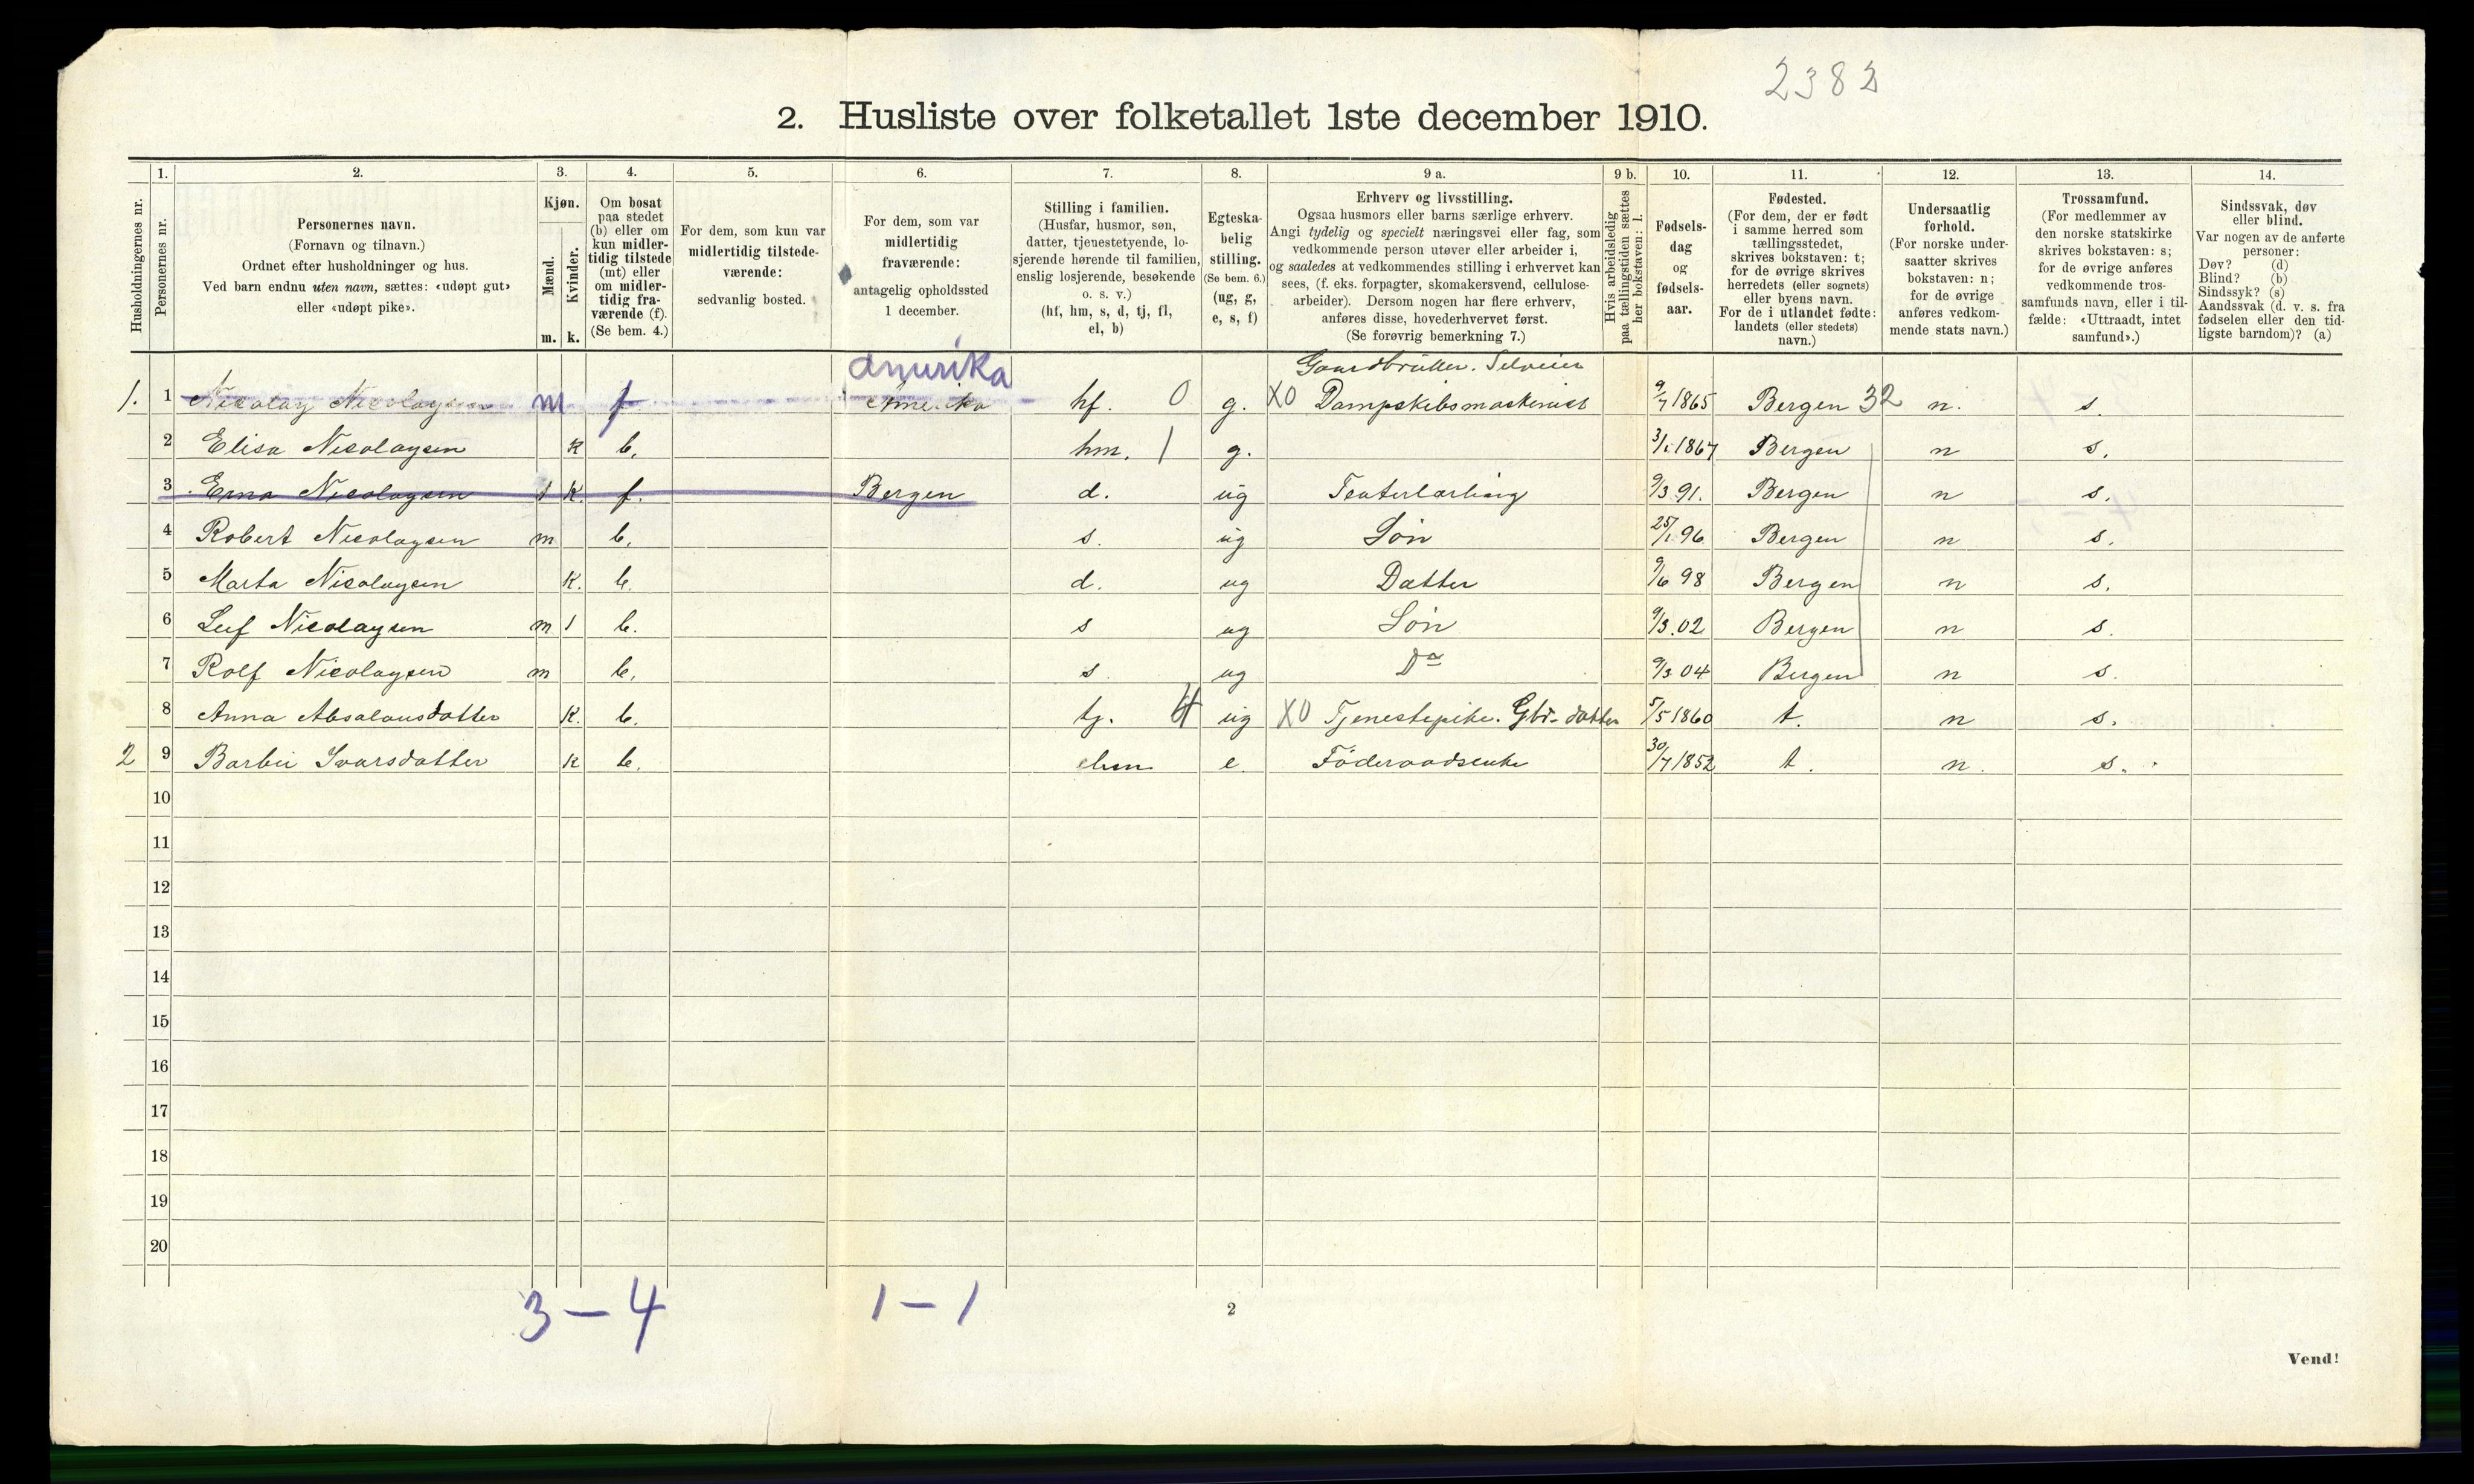 2382
2. Husliste over folketallet 1ste december 1910.
Husholdningernes nr.
1. Personernes nr.
2. Personernes navn.
(Fornavn og tilnavn.)
Ordnet efter husholdninger og hus.
Ved barn endnu uten navn, sættes: «udøpt gut»
eller «udøpt pike».
3. Kjøn.
Mænd. Kvinder.
m. k.
4. Om bosat
paa stedet
(b) eller om
kun midler-
tidig tilstede
(mt) eller
om midler-
tidig fra-
værende (f).
(Se bem. 4.)
5. For dem, som kun var
midlertidig tilstede-
værende:
sedvanlig bosted.
6. For dem, som var
midlertidig
fraværende:
antagelig opholdssted
1 december.
7. Stilling i familien.
(Husfar, husmor, søn,
datter, tjenestetyende, lo-
sjerende hørende til familien,
enslig losjerende, besøkende
o. s. v.)
(hf, hm, s, d, tj, fl,
el, b)
8. Egteska-
belig
stilling.
(Se bem. 6.)
(ug, g,
e, s, f)
9 a. Erhverv og livsstilling.
Ogsaa husmors eller barns særlige erhverv.
Angi tydelig og specielt næringsvei eller fag, som
vedkommende person utøver eller arbeider i,
og saaledes at vedkommendes stilling i erhvervet kan
sees, (f. eks. forpagter, skomakersvend, cellulose-
arbeider). Dersom nogen har flere erhverv,
anføres disse, hovederhvervet først.
(Se forøvrig bemerkning 7.)
9 b. Hvis arbeidsledig
paa tællingstiden sættes
her bokstaven: l.
10. Fødsels-
dag
og
fødsels-
aar.
11. Fødested.
(For dem, der er født
i samme herred som
tællingsstedet,
skrives bokstaven: t;
for de øvrige skrives
herredets (eller sognets)
eller byens navn.
For de i utlandet fødte:
landets (eller stedets)
navn.)
12. Undersaatlig
forhold.
(For norske under-
saatter skrives
bokstaven: n;
for de øvrige
anføres vedkom-
mende stats navn.)
13. Trossamfund.
(For medlemmer av
den norske statskirke
skrives bokstaven: s;
for de øvrige anføres
vedkommende tros-
samfunds navn, eller i til-
fælde: «Uttraadt, intet
samfund».)
14. Sindssvak, døv
eller blind.
Var nogen av de anførte
personer:
Døv? (d)
Blind? (b)
Sindssyk? (s)
Aandssvak (d. v. s. fra
fødselen eller den tid-
ligste barndom)? (a)
Amerika Gaardbruker. Selveier
1. 1 Nicolay Nicolaysen m f Amerika hf. 0 g. X0 Dampskibsmaskinist 9/7 1865 Bergen 32 n. s.
2 Elisa Nicolaysen k b. hm. 1 g. 3/1 1867 Bergen n s.
3 Erna Nicolaysen 1 k. f. Bergen d. ug Teaterlærling 9/3 91. Bergen n s.
4 Robert Nicolaysen m b. s. ug Søn 25/1 96 Bergen n s.
5 Marta Nicolaysen k. b. d. ug Datter 9/6 98 Bergen n s.
6 Leif Nicolaysen m 1 b. s ug Søn 9/3.02 Bergen n s.
7 Rolf Nicolaysen m b. s. ug Do 9/3 04 Bergen n s.
8 Anna Absalonsdatter k. b. tj. 4 ug X0 Tjenestepike. Gbr-datter 5/5 1860 t. n s.
2 9 Barbu Ivarsdatter k b. e. Föderaadsenke 30/7 1852 t. n. s.
10
11
12
13
14
15
16
17
18
19
20
3 – 4 1 – 1
2
Vend!